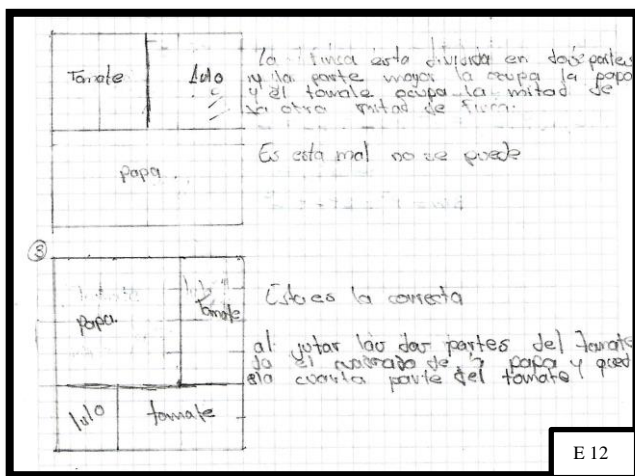 Tomate
Lulo
La finca esta dividida en dos partes
y la parte mayor la ocupa la papa
y el tomate ocupa la mitad de
la otra mitad de finca.
papa
Es esta mal no se puede
③
papa.
tomate
Esta es la correcta
al jutar las dos partes del tomate
da el cuadrado de la papa y qued
la cuarta parte del tomate
lulo
tomate
E 12